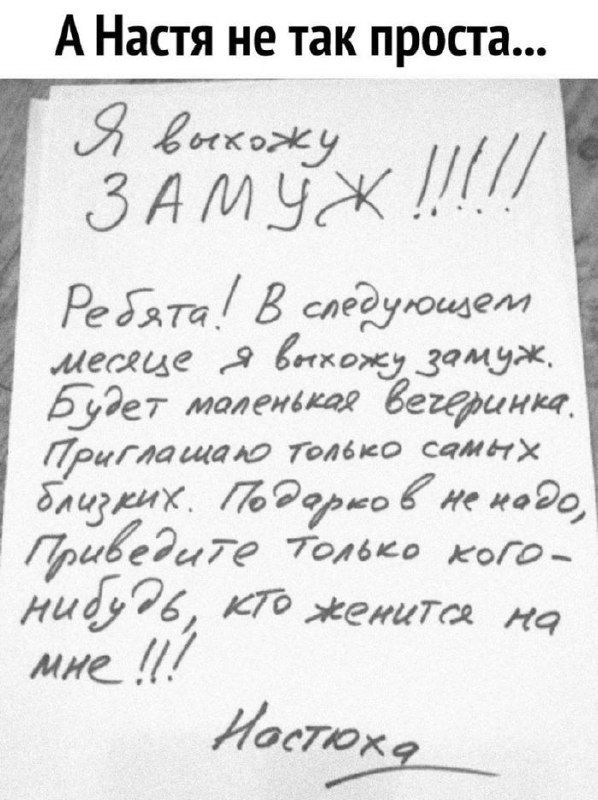 А Настя не так проста...
Я выхожу
ЗАМУЖ !!!!!
Ребята! В следующем
месяце я выхожу замуж.
Будет маленькая вечеринка.
Приглашаю только самых
близких. Подарков не надо,
Приведите только кого-
нибудь, кто женится на
мне !!!
Настюха